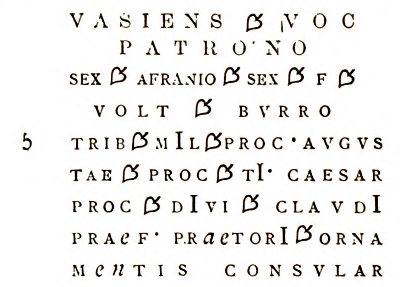 VASIENS ❧ VOC
PATRONO
SEX ❧ AFRANIO ❧ SEX ❧ F ❧
VOLT ❧ BVRRO
5 TRIB ❧ MIL ❧ PROC · AVGVS
TAE ❧ PROC ❧ TI · CAESAR
PROC ❧ DIVI ❧ CLAVDI
PRAeF · PRaeTORI ❧ ORNA
MenTIS CONSVLAR